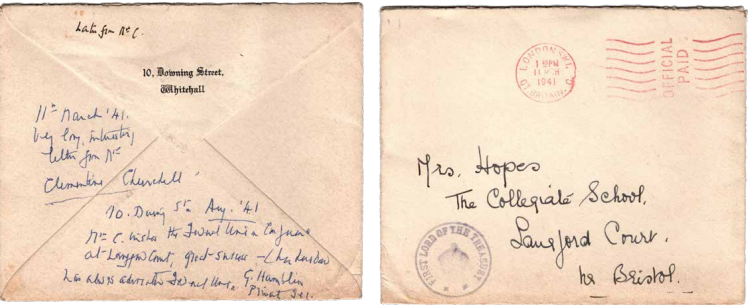 Letter from Mrs C.
10, Downing Street,
Whitehall
11th March '41.
Very long, interesting
letter from Mrs
Clementine Churchill
10. Downing St. Aug. '41
Mrs C. wishes the
at Langford Court, great success -
has always
G. Hamblin
Private Sec.
LONDON S.W.1.
1941
OFFICIAL
PAID
Mrs. Hopes
The Collegiate School,
Langford Court.
Nr Bristol.
FIRST LORD OF THE TREASURY